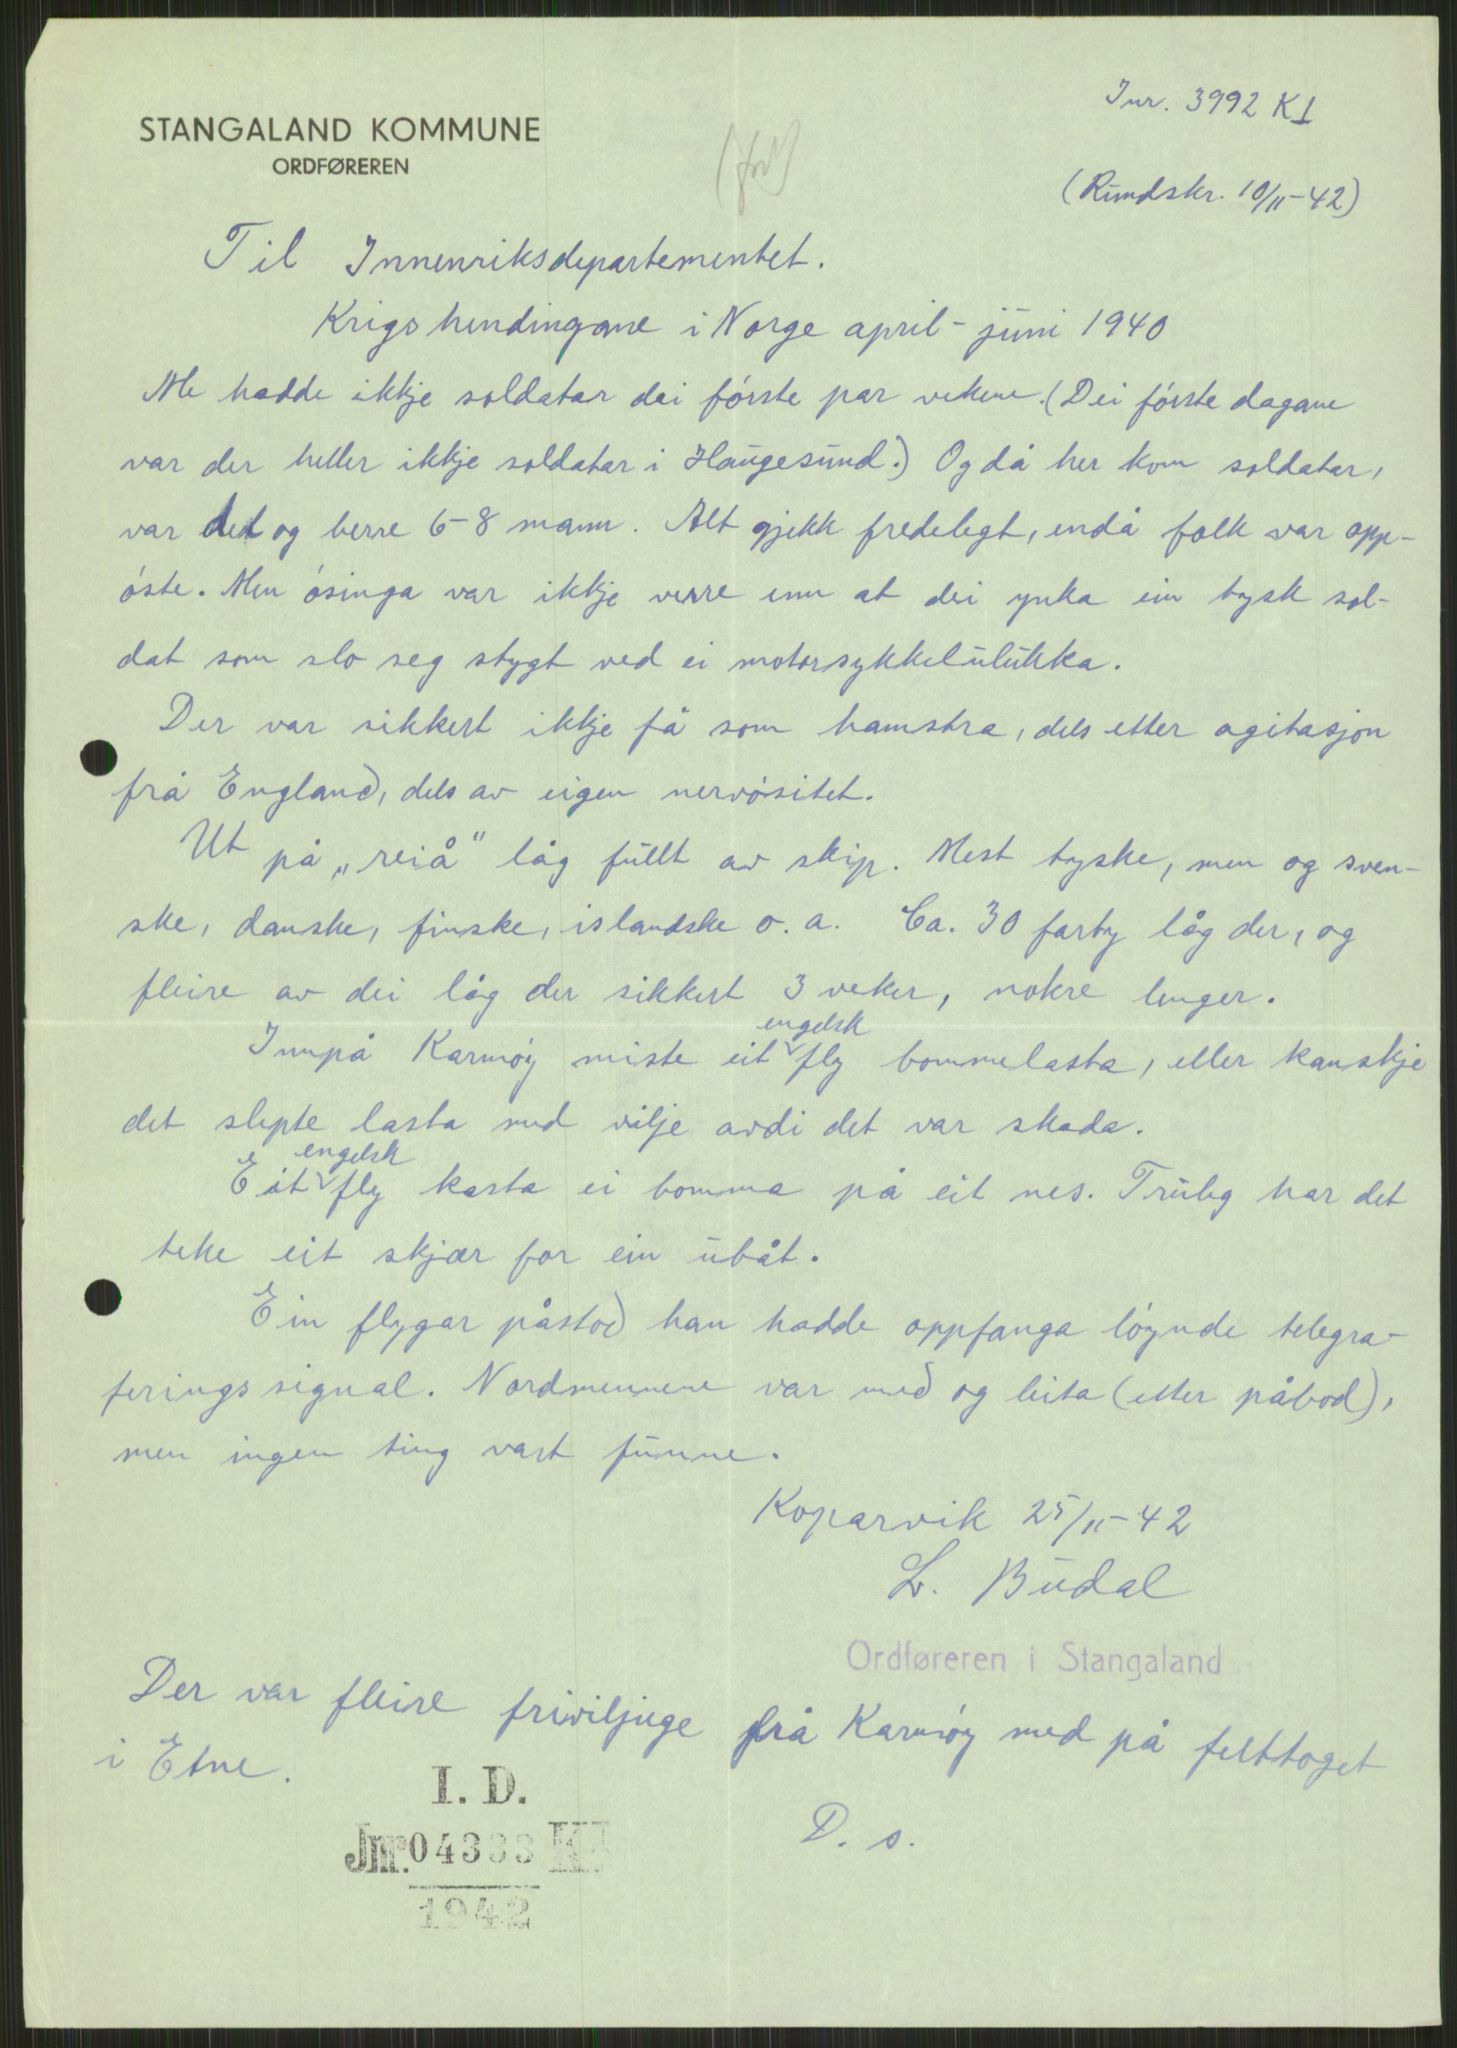 Jnr. 3992 K1
STANGALAND KOMMUNE
ORDFØREREN
(Rundskr. 10/11-42)
Til Innenriksdepartementet.
Krigshendingane i Norge april - juni 1940
Me hadde ikkje soldatar dei fórste par vekene. (Dei fórste dagane
var der heller ikkje soldatar i Haugesund.) Og då her kom soldatar,
var det og berre 6-8 mann. Alt gjekk fredelegt, endå folk var opp-
óste. Men ósinga var ikkje verre enn at dei ynka ein tysk sol-
dat som slo seg stygt ved ei motorsykkelulukka.
Der var sikkert ikkje få som hamstra, dels etter agitasjon
frå England, dels av eigen nervósitet.
Ut på „reiå" låg fullt av skip. Mest tyske, men og sven-
ske, danske, finske, islandske o. a. Ca. 30 farty låg der, og
fleire av dei låg der sikkert 3 veker, nokre lenger.
Innpå Karmóy miste eit engelsk fly bommelasta, eller kanskje
det slepte lasta med vilje avdi det var skada.
Eit engelsk fly kasta ei bomma på eit nes. Truleg har det
teke eit skjær for ein ubåt.
Ein flygar påstod han hadde oppfanga lóynde telegra-
feringssignal. Nordmennene var med og leita (etter påbod),
men ingen ting vart funne.
Koparvik 25/11-42
L. Budal
Ordføreren i Stangaland
Der var fleire friviljuge frå Karmóy med på felttoget
i Etne.
D. s.
I. D.
Jnr. 04333
1942